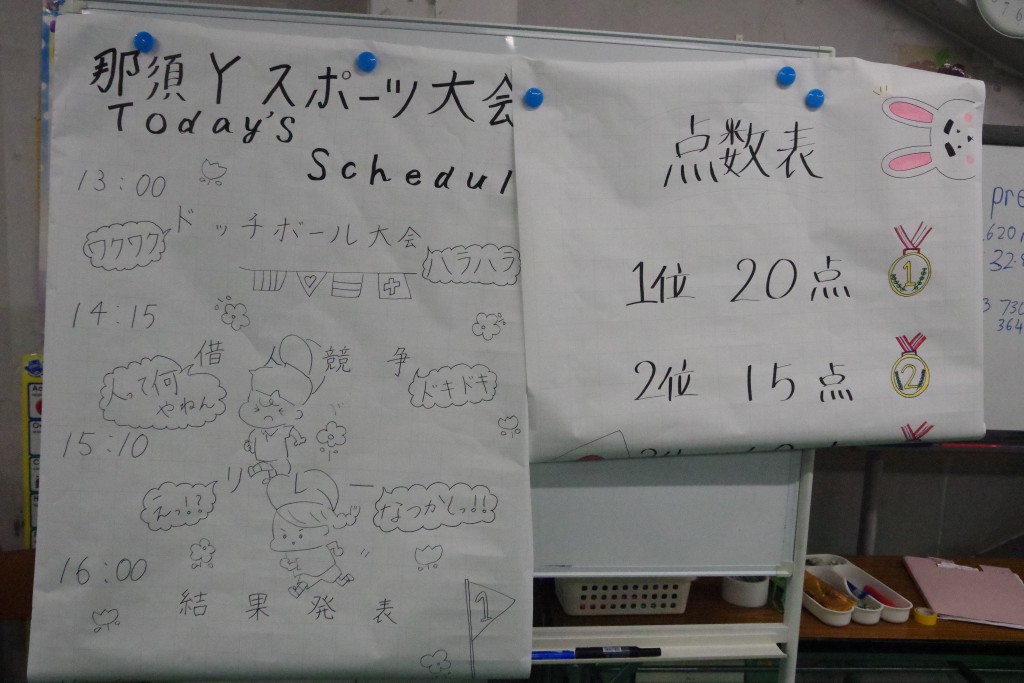 那須Yスポーツ大会
Today's
Schedul
13:00
ドッチボール大会
ワクワク
ハラハラ
14:15
借人競争
人って何
やねん
ドキドキ
15:10
リレー
えっ!?
なつかしっ!!
16:00
結果発表
1
点数表
1位 20点
1
2位 15点
2
pre